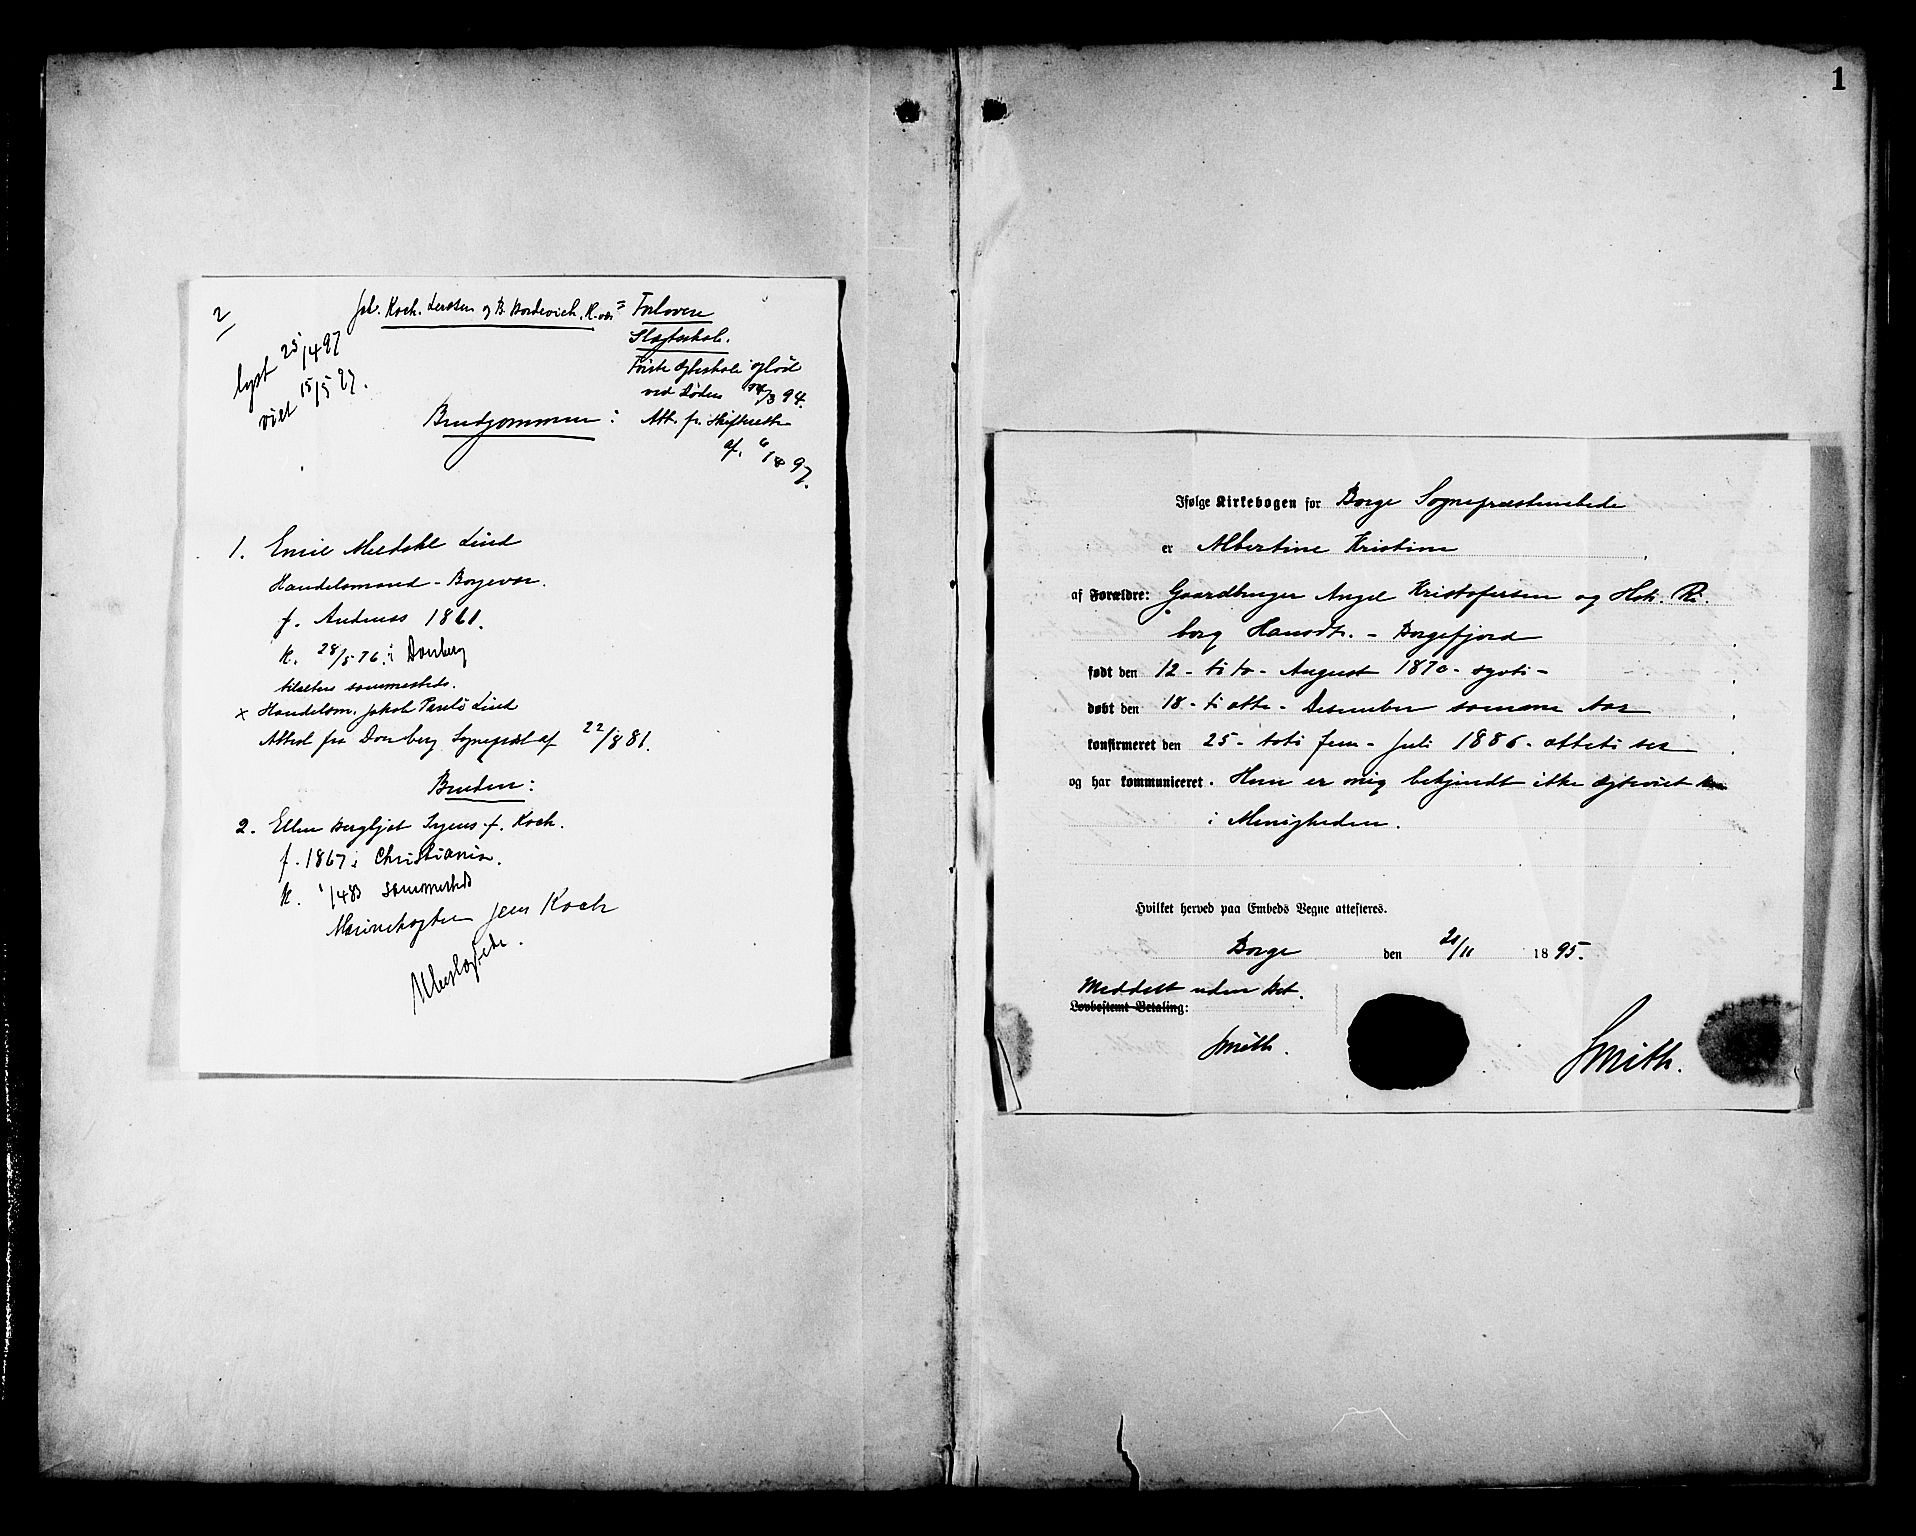 2
lyst 25/4 97
viet 15/5 97.
Joh. Koch. og B. = Forlovere
Slagtskab.
Første Egteskab opløst
ved Døden /3 94.
Brudgommen : Att. fr. Skifteretten
af. 6/ 97.
1. Emil Meldahl Lind
Handelsmand - Borgevær.
f. Andenæs 1861.
k. 28/5 76. i Dverberg
tilaltens sammesteds.
x Handelsm. Jakob Lind
Attest fra Dverberg Sognepræst af 22/8 81.
Bruden :
2. Ellen Bergljot f. Koch.
f. 1867 i Christiania.
k. 1/4 83 sammesteds
Marinekaptein Jens Koch
1
Ifølge Kirkebogen for Borge Sognepræstembede
er Albertine Kristine
af Forældre: Gaardbruger Angel Kristofersen og Hst. Ri-
borg Hansdtr. - Borgefjord
født den 12 - ti to - August 1870 - sytti -
døbt den 18 - ti otte - Desember samme Aar
konfirmeret den 25 - toti fem - Juli 1886 - otteti sex
og har kommuniceret. Hun er mig bekjendt ikke egteviet
i Menigheden.
Hvilket herved paa Embeds Vegne attesteres.
Borge den 20/11 1895.
Meddelt uden Bet.
Lovbestemt Betaling:
Smith.
Smith.